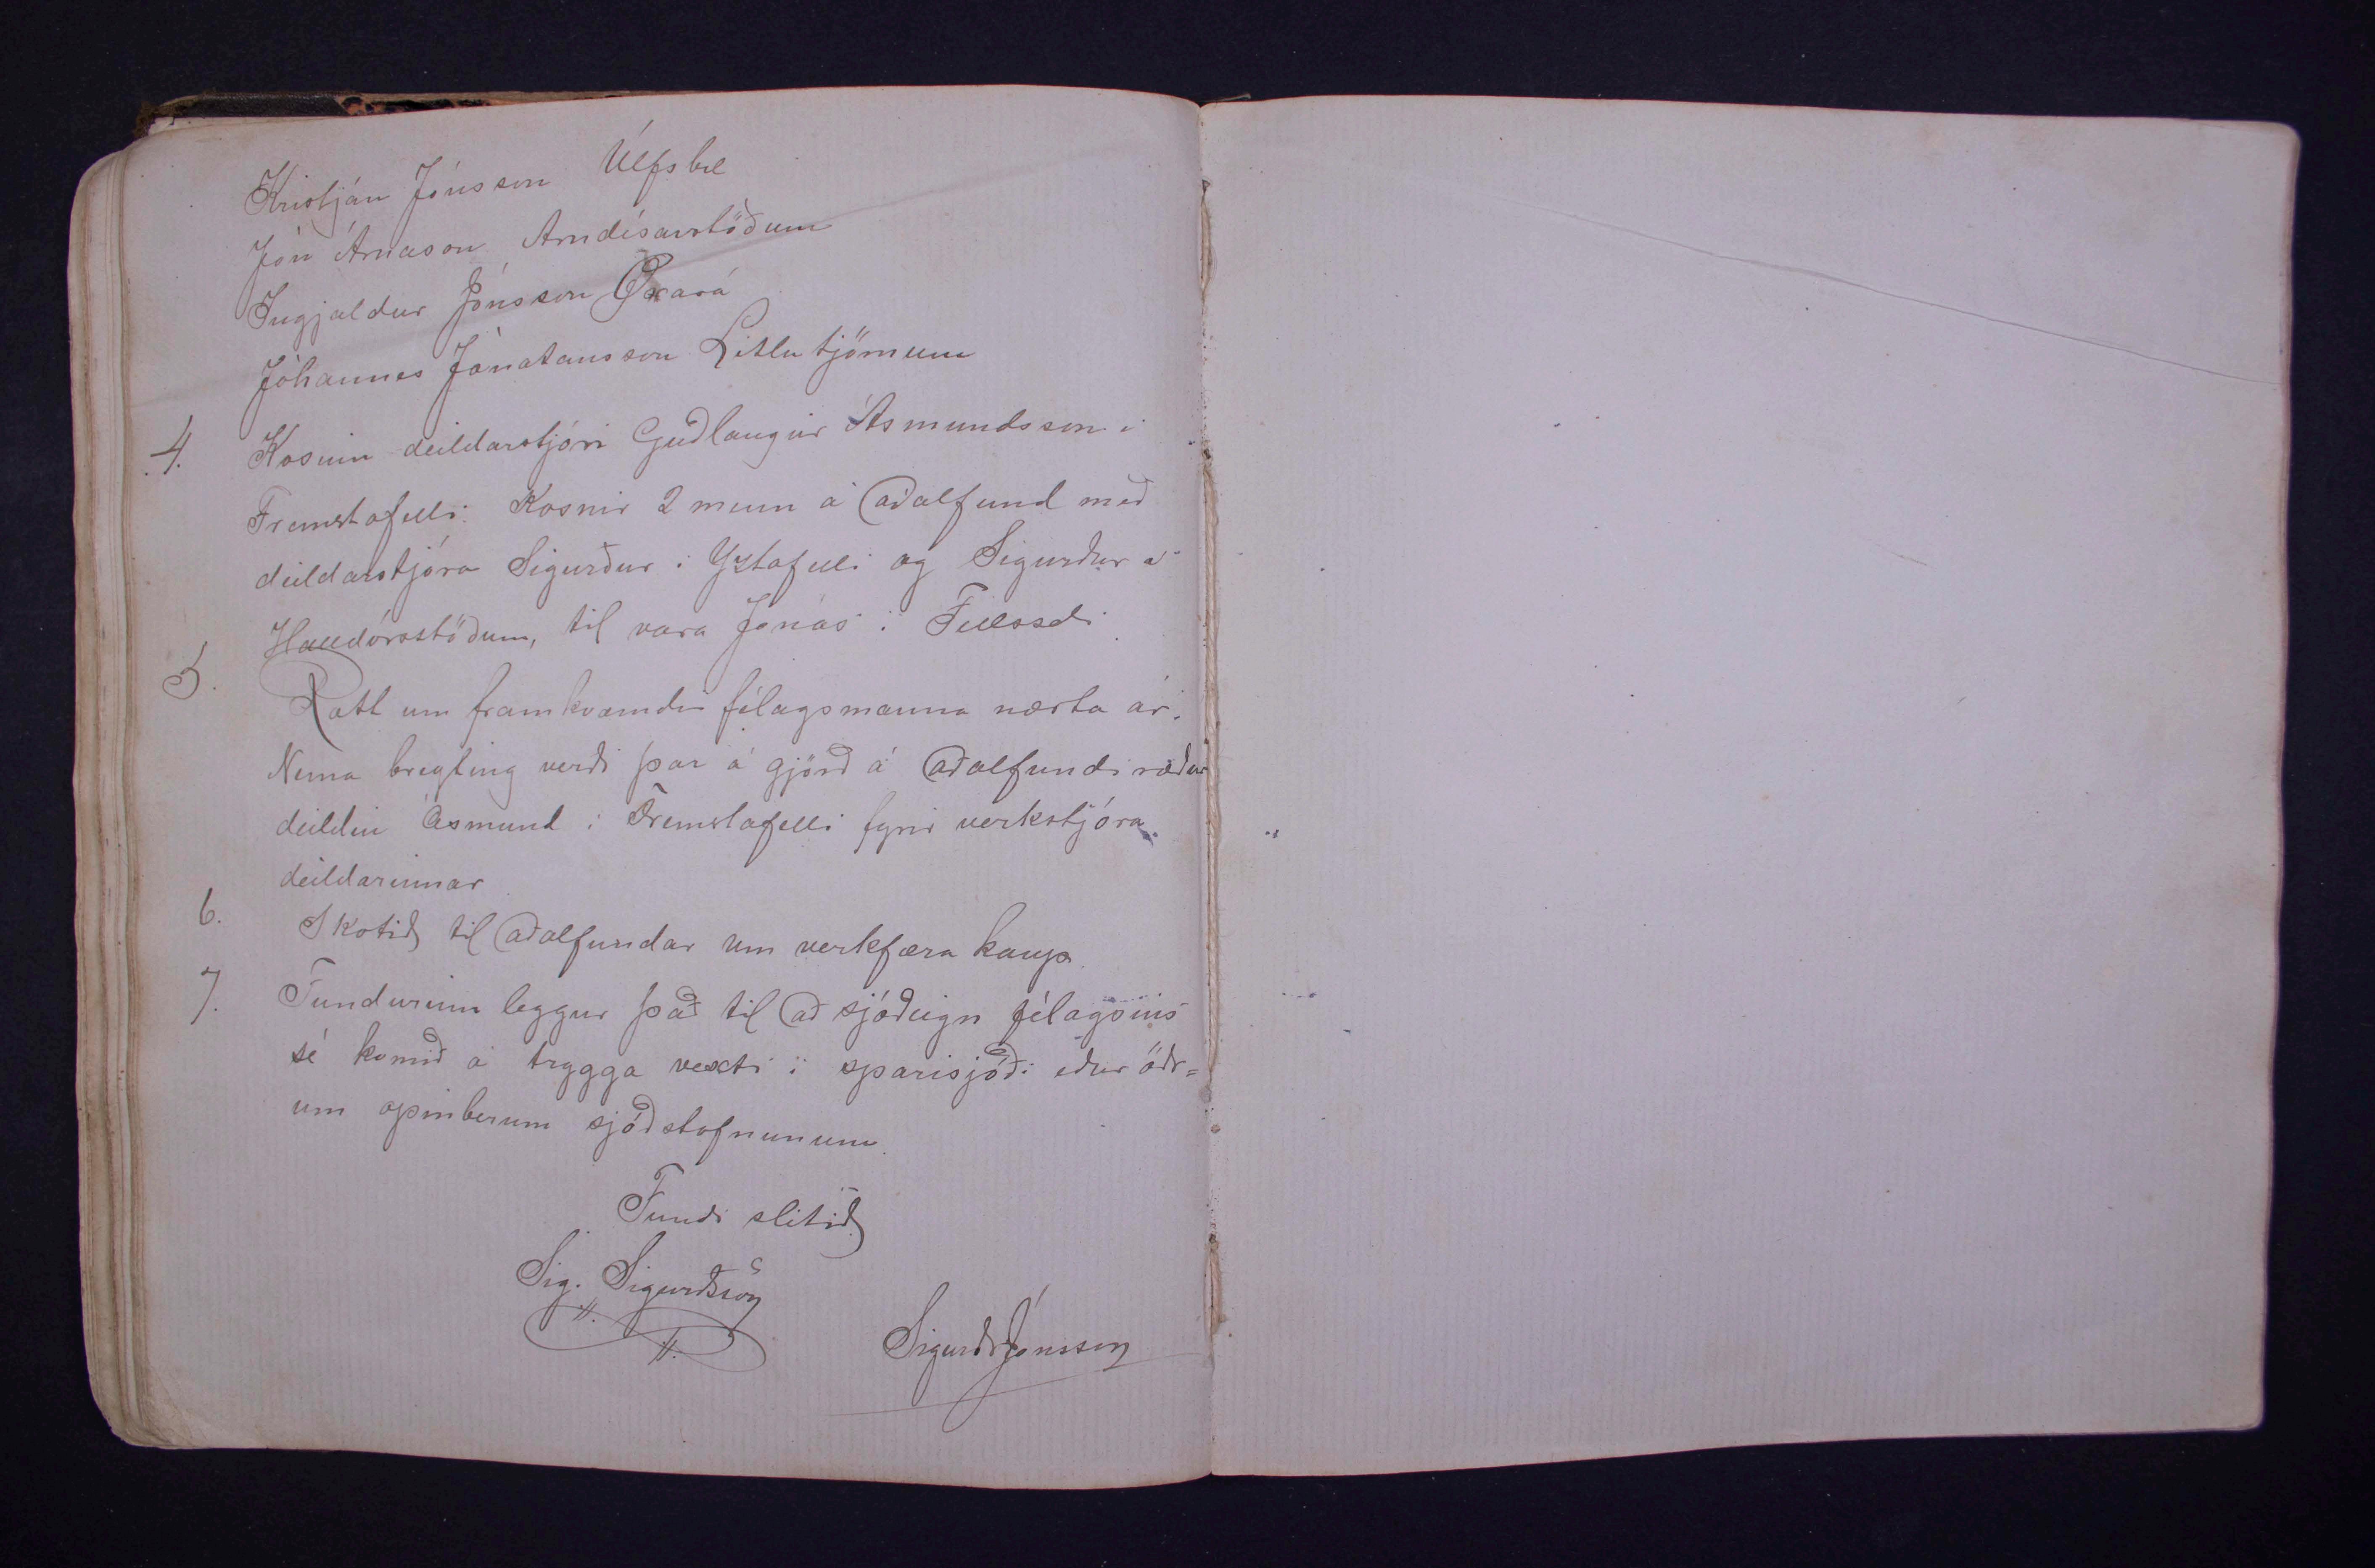 Kristján Jónsson Úlfsbæ
Jón Árnason Arndísarstöðum
Ingjaldur Jónsson Öxará
Jóhannes Jónatansson Litlutjörnum
4. Kosinn deildarstjóri Guðlaugur Ásmundsson í
Fremstafelli. Kosnir 2 menn á aðalfund með
deildarstjóra Sigurður í Yztafelli og Sigurður á
Halldórsstöðum, til vara Jónas í Fellsseli
5. Rætt um framkvæmdir félagsmanna næsta ár.
Nema breyting verði þar á gjörð á aðalfundi ræður
deildin Ásmund í Fremstafelli fyrir verkstjóra
deildarinnar
6. Skotið til aðalfundar um verkfæra kaup.
7. Fundurinn leggur það til að sjóðeign félagsins
sé komið á trygga vexti í sparisjóði eður öðr=
um opinberum sjóðstofnunum.
Fundi slitið
Sig. Sigurðsson
Sigurðr Jónsson